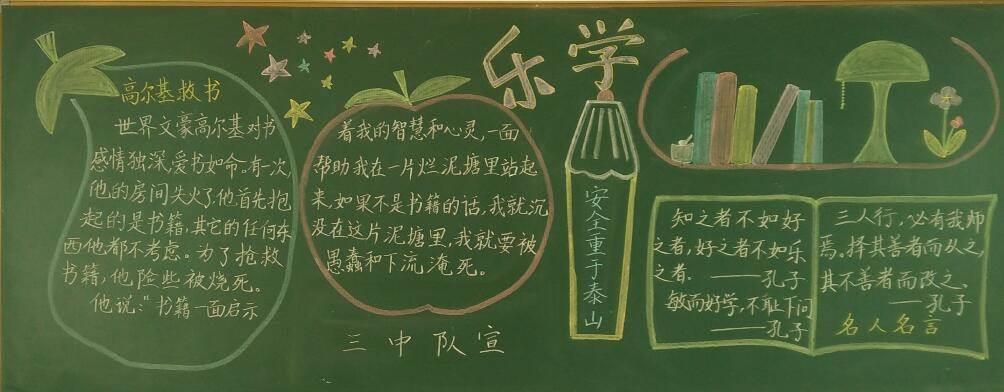 乐学
高尔基救书
世界文豪高尔基对书
感情独深,爱书如命。有一次,
他的房间失火了,他首先抱
起的是书籍,其它的任何东
西他都不考虑。为了抢救
书籍,他险些被烧死。
他说:“书籍一面启示
着我的智慧和心灵,一面
帮助我在一片烂泥塘里站起
来,如果不是书籍的话,我就沉
没在这片泥塘里,我就要被
愚蠢和下流淹死。
三中队宣
安全重于泰山
知之者不如好
之者,好之者不如乐
之者。——孔子
敏而好学,不耻下问
——孔子
三人行,必有我师
焉。择其善者而从之,
其不善者而改之。
——孔子
名人名言